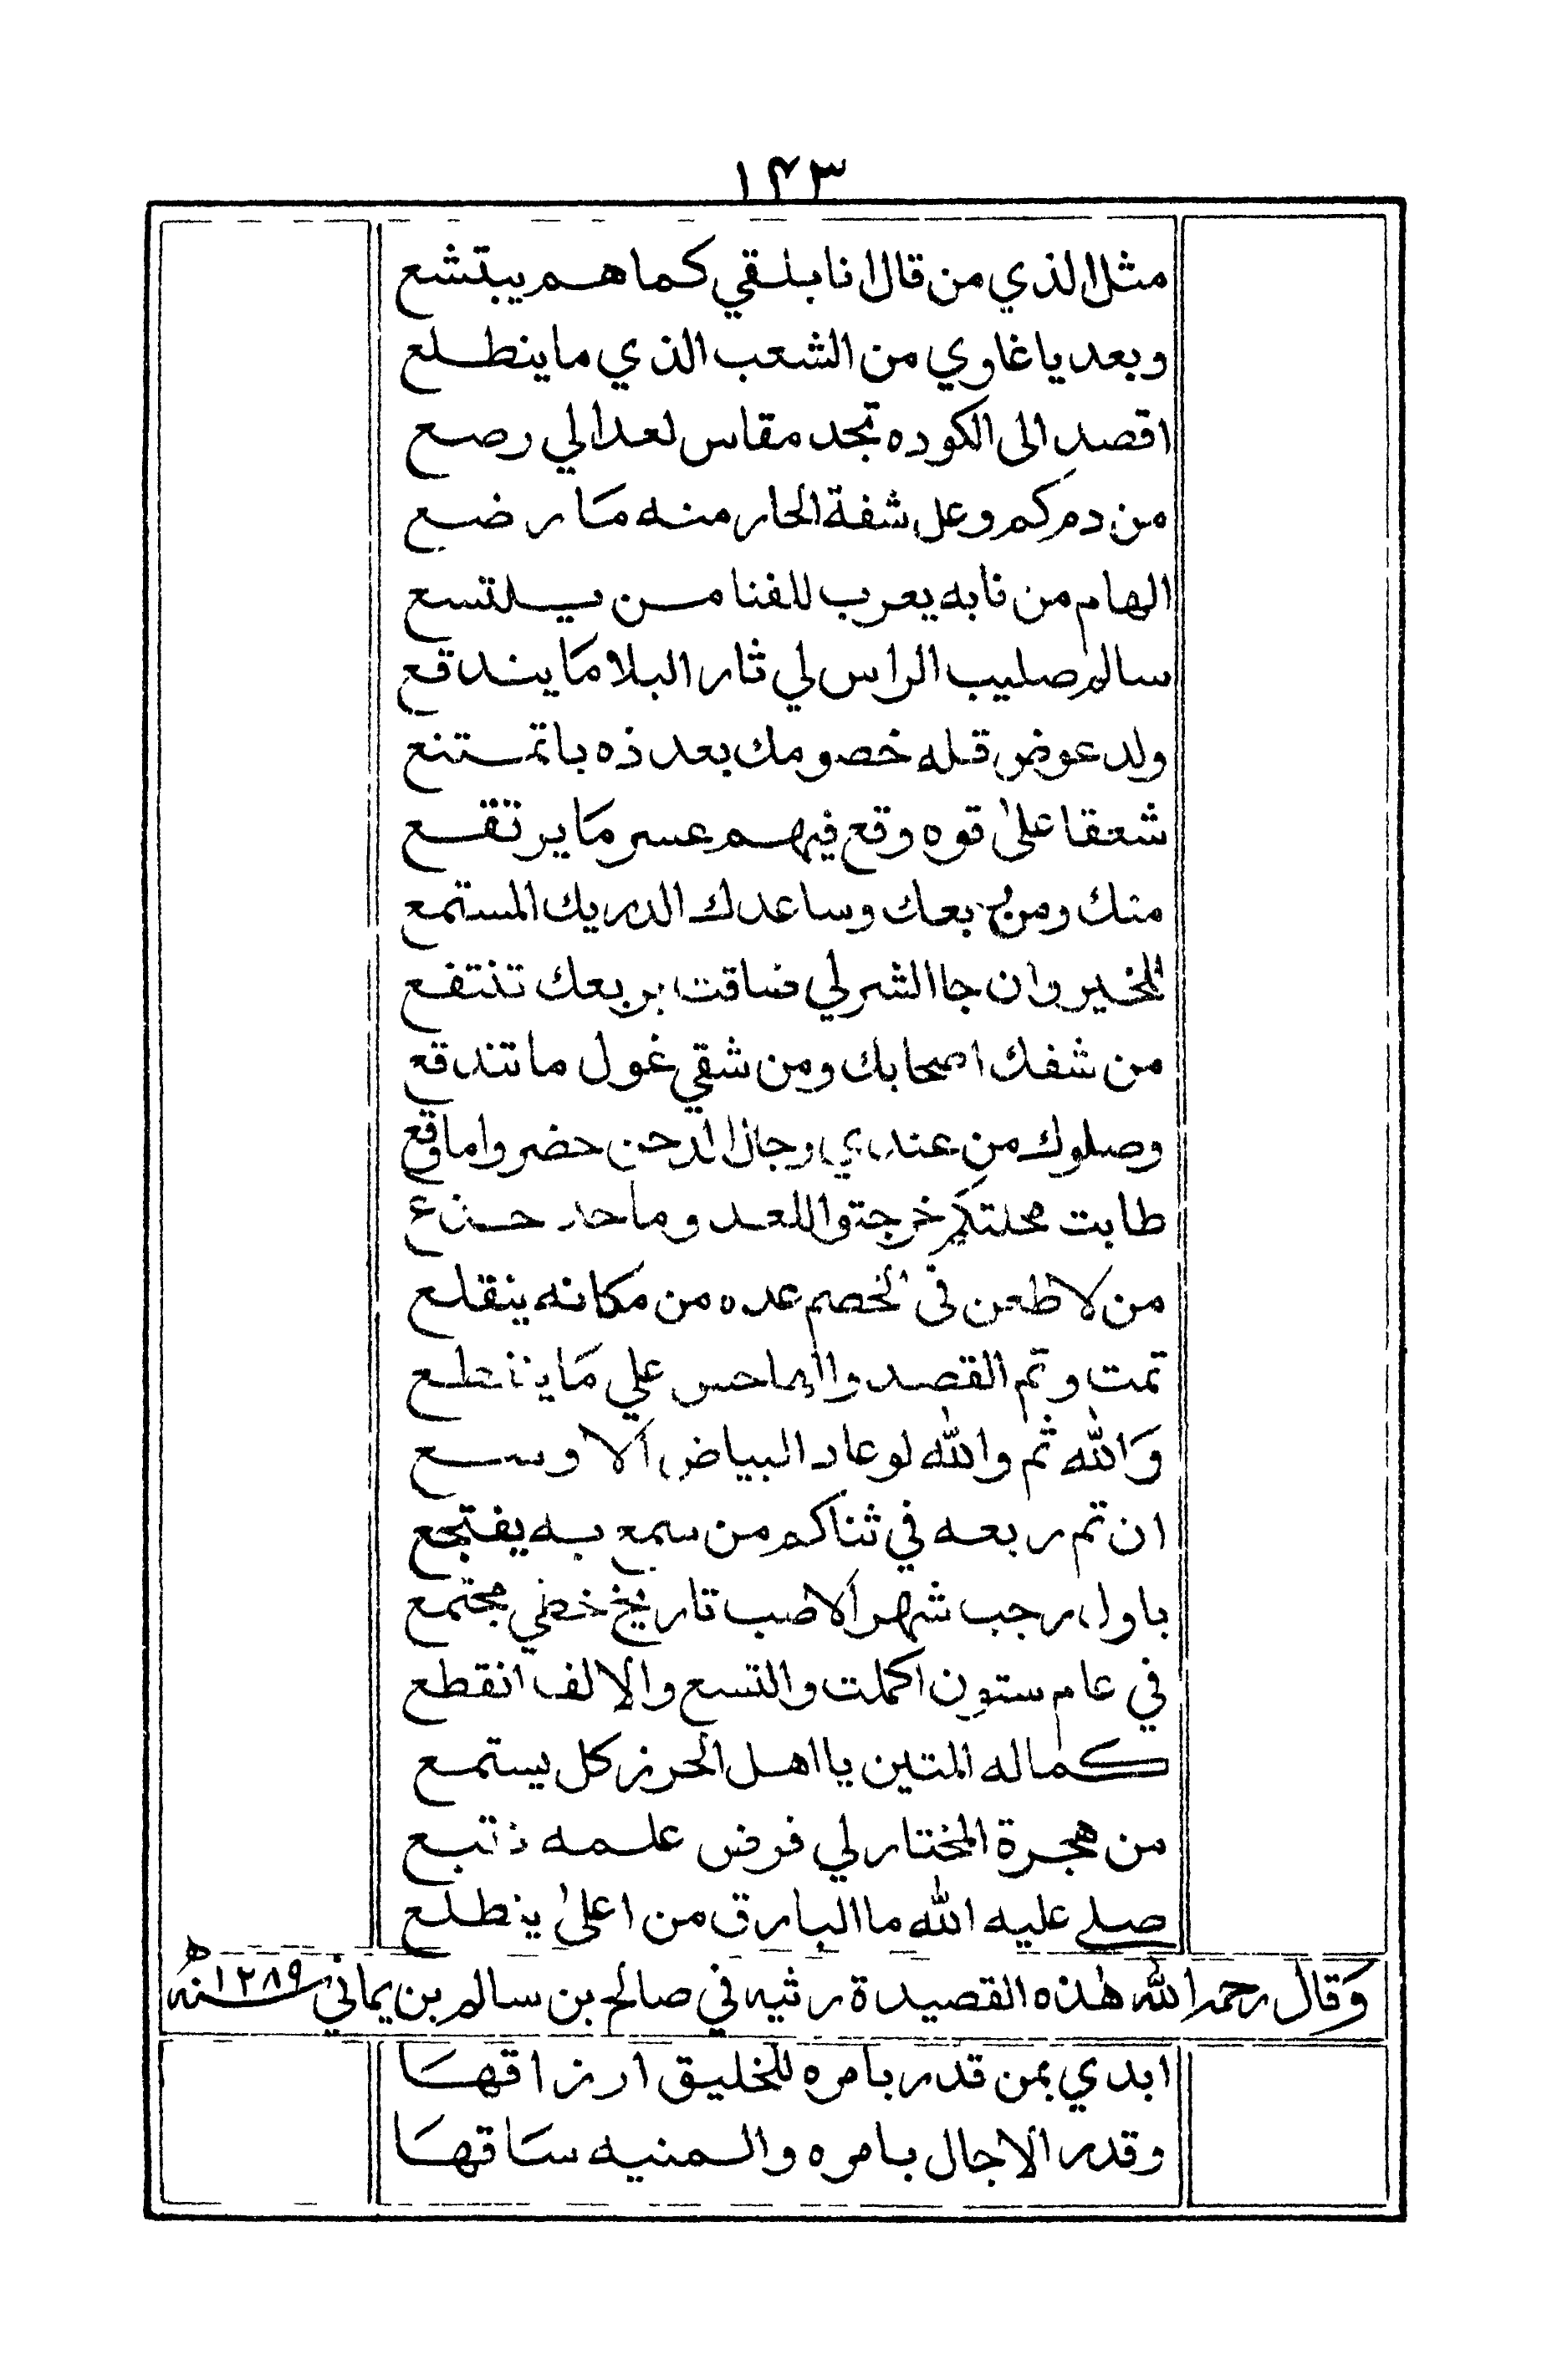 ١٤٣
مثل الذي من قال انا بلقي كما هم يبتشع
وبعد يا غاوي من الشعب الذي ما ينطلع
اقصد الى الكوده تجد مقاس لعدا لي رصع
من دم كم وعل شفة الحار منه ما رضع
الهام من نابه يعرب للفنا من يلتسع
سالم صليب الراس لي ثار البلا ما يندقع
ولد عوض قله خصومك بعد ذه باتمستنع
شعقا على قوه وقع فيهم عسر ما يرتقع
منك ومن بعك وساعدك الدريك المستمع
للخير وان جا الشر لي ضاقت بربعك تنتفع
من شفك اصحابك ومن شقي غول ما تندقع
وصلوك من عندي رجال الدحن حضروا ما وقع
طابت محلتكم خرجتوا للعد وما حد حنع
من لا طعن في الخصم عده من مكانه ينقلع
تمت وتم القصد والهاحس علي ما ينطع
والله ثم والله لو عاد البياض الا وسع
ان تم ربعه في ثناكم من سمع به يفتجع
باول رجب شهر الاصب تاريخ خطي مجتمع
في عام ستون اكملت والتسع والالف انقطع
كماله المتين يا اهل الحرز كل يستمع
من هجرة المختار لي فرض علمه نتبع
صلى عليه الله ما البارق من اعلى ينطلع
وقال رحمه الله هذه القصيدة رثيه في صالح بن سالم بن يماني سنه ١٢٨٩ه
ابدي بمن قدر بامره للخليق ارزاقها
وقدر الاجال بامره والمنيه ساقها